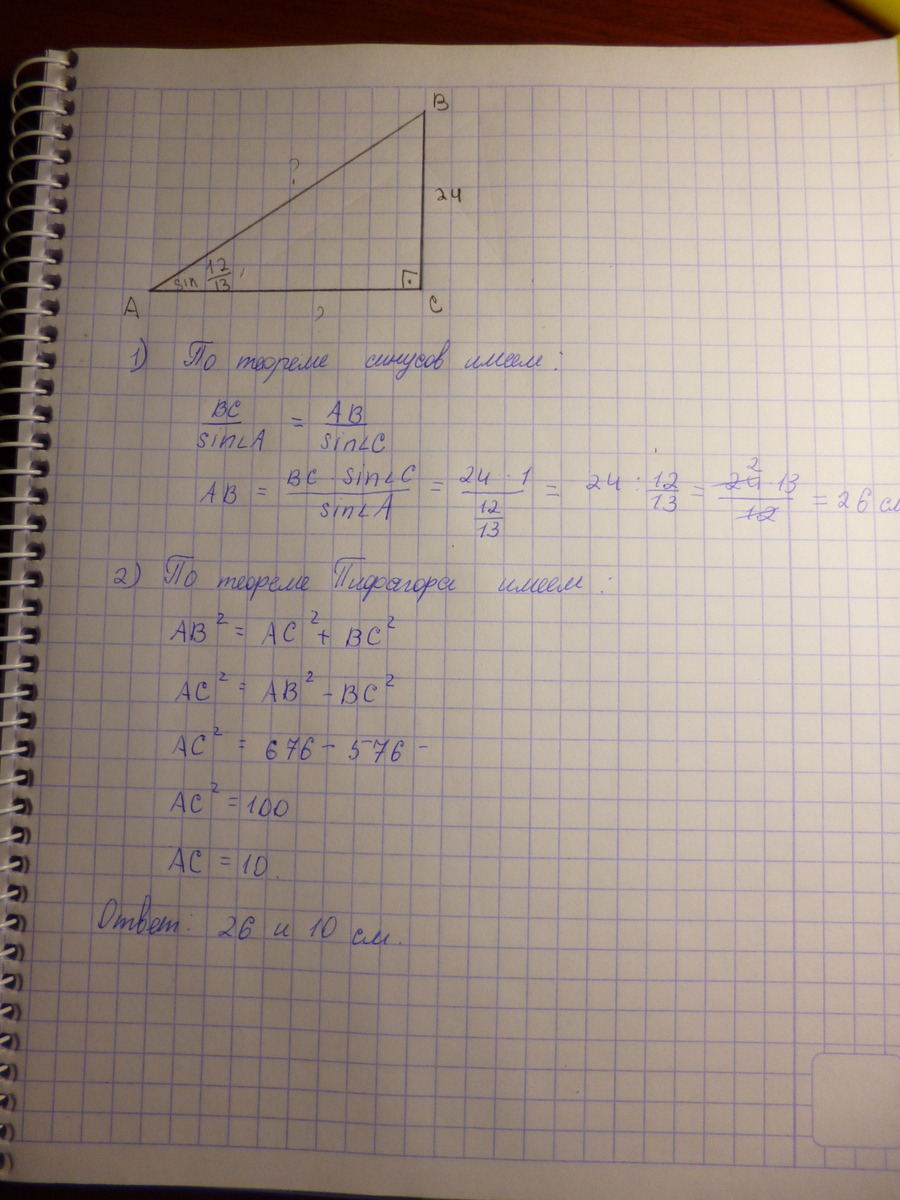 B
?
24
sin 12/13
A
?
C
1) По теореме синусов имеем:
BC/sin∠A = AB/sin∠C
AB = BC · sin∠C/sin∠A = 24 · 1/(12/13) = 24 : 12/13 = 2 24 · 13/12 = 26 см
2) По теореме Пифагора имеем:
AB² = AC² + BC²
AC² = AB² - BC²
AC² = 676 - 576 -
AC² = 100
AC = 10.
Ответ: 26 и 10 см.